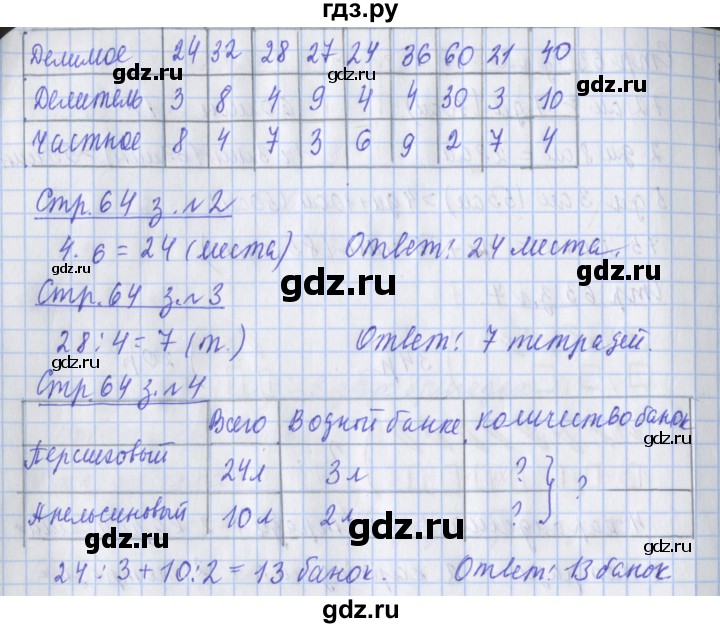 гдз.ру
Делимое 24 32 28 27 24 36 60 21 40
gdz.ru gdz.ru gdz.ru
Делитель 3 8 4 9 4 4 30 3 10
Частное 8 4 7 3 6 9 2 7 4
gdz.ru gdz.ru gdz.ru
Стр. 64 з. №2
4 · 6 = 24 (места) Ответ: 24 места.
gdz.ru gdz.ru gdz.ru
Стр. 64 з. №3
28 : 4 = 7 (т.) Ответ: 7 тетрадей.
gdz.ru gdz.ru
Стр. 64 з. №4
Всего В одной банке Количество банок
gdz.ru gdz.ru
Персиговый 24л 3л ?
?
Апельсиновый 10л 2л ?
gdz.ru gdz.ru gdz.ru
24 : 3 + 10 : 2 = 13 банок. Ответ: 13 банок
gdz.ru gdz.ru
gdz.ru